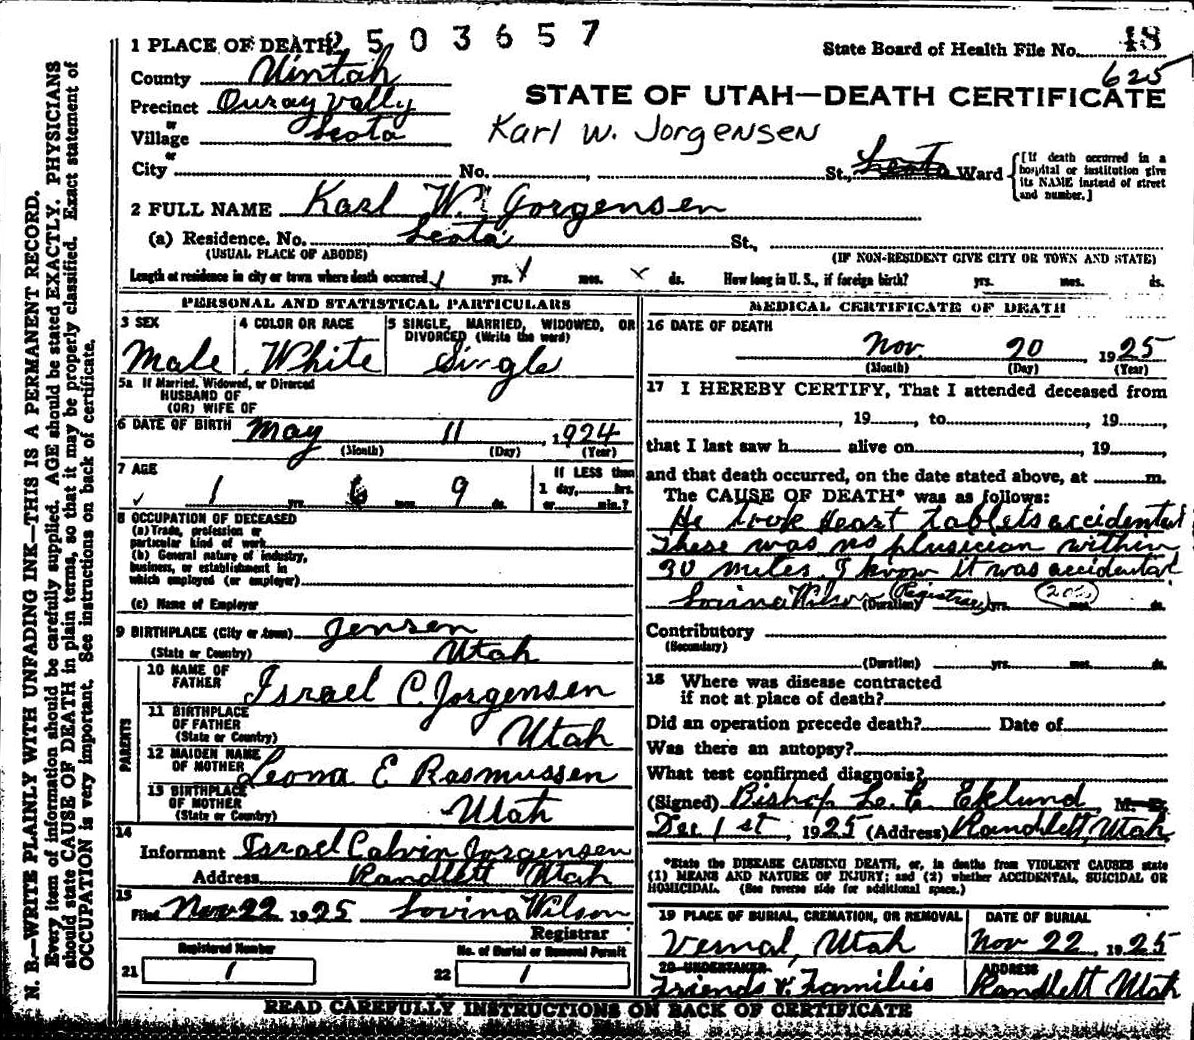 2503657
1 PLACE OF DEATH
State Board of Health File No. 48
625
County Uintah
STATE OF UTAH—DEATH CERTIFICATE
Precinct Ouray Vally
or
Village Leota
Karl W. Jorgensen
or
City No. , St., Leota Ward
[If death occurred in a hospital or institution give its NAME instead of street and number.]
2 FULL NAME Karl W. Jorgensen
(a) Residence. No. Leota St.,
(USUAL PLACE OF ABODE)
(IF NON-RESIDENT GIVE CITY OR TOWN AND STATE)
Length of residence in city or town where death occurred 1 yrs. 1 mos. x ds. How long in U. S., if foreign birth? yrs. mos. ds.
PERSONAL AND STATISTICAL PARTICULARS
3 SEX
Male
4 COLOR OR RACE
White
5 SINGLE, MARRIED, WIDOWED, OR
DIVORCED (Write the word)
Single
5a If Married, Widowed, or Divorced
HUSBAND OF
(OR) WIFE OF
6 DATE OF BIRTH May 11, 1924
(Month) (Day) (Year)
7 AGE
1 yrs. 6 mos. 9 ds.
IF LESS than
1 day, hrs.
or min.?
8 OCCUPATION OF DECEASED
(a) Trade, profession or
particular kind of work
(b) General nature of industry,
business, or establishment in
which employed (or employer)
(c) Name of Employer
9 BIRTHPLACE (City or town) Jensen
(State or Country) Utah
PARENTS
10 NAME OF
FATHER Israel C. Jorgensen
11 BIRTHPLACE
OF FATHER
(State or Country) Utah
12 MAIDEN NAME
OF MOTHER Leona E Rasmussen
13 BIRTHPLACE
OF MOTHER
(State or Country) Utah
14
Informant Israel Calvin Jorgensen
Address Randlett Utah
15
Filed Nov 22 1925 Lovina Wilson
Registrar
Registered Number
21 1
No. of Burial or Removal Permit
22 1
MEDICAL CERTIFICATE OF DEATH
16 DATE OF DEATH
Nov. 20, 1925
(Month) (Day) (Year)
17 I HEREBY CERTIFY, That I attended deceased from
, 19 , to , 19 ,
that I last saw h alive on , 19 ,
and that death occurred, on the date stated above, at m.
The CAUSE OF DEATH* was as follows:
He took Heart tablets accidental
There was no plusician within
30 miles. I know it was accidental
Lovina Wilson (Duration) (Registrar) yrs. mos. ds.
Contributory
(Secondary)
(Duration) yrs. mos. ds.
18 Where was disease contracted
if not at place of death?
Did an operation precede death? Date of
Was there an autopsy?
What test confirmed diagnosis?
(Signed) Bishop L. E. Eklund M. D.
Dec 1st, 1925 (Address) Randlett, Utah
*State the DISEASE CAUSING DEATH, or, in deaths from VIOLENT CAUSES state
(1) MEANS AND NATURE OF INJURY; and (2) whether ACCIDENTAL, SUICIDAL OR
HOMICIDAL. (See reverse side for additional space.)
19 PLACE OF BURIAL, CREMATION, OR REMOVAL
Vernal, Utah
DATE OF BURIAL
Nov 22, 1925
20 UNDERTAKER
Friends & Families
ADDRESS
Randlett Utah
READ CAREFULLY INSTRUCTIONS ON BACK OF CERTIFICATE
N. B.—WRITE PLAINLY WITH UNFADING INK—THIS IS A PERMANENT RECORD.
Every item of information should be carefully supplied. AGE should be stated EXACTLY. PHYSICIANS
should state CAUSE OF DEATH in plain terms, so that it may be properly classified. Exact statement of
OCCUPATION is very important. See instructions on back of certificate.